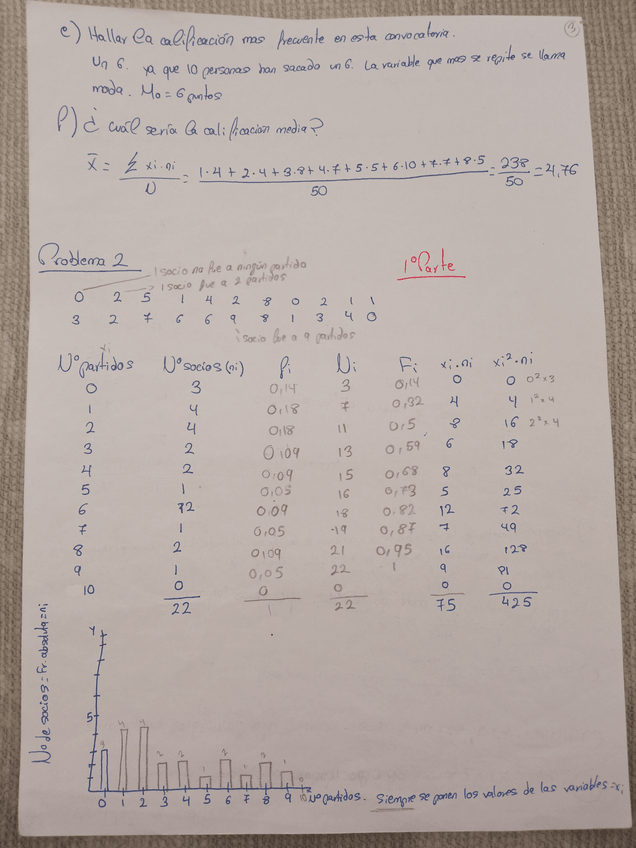 3
e) Hallar la calificación mas frecuente en esta convocatoria.
Un 6. ya que 10 personas han sacado un 6. La variable que mas se repite se llama
moda. Mo = 6 puntos
f) ¿ cuál sería la calificación media?
x̄ = Σ xi.ni / N = 1.4 + 2.4 + 3.8 + 4.7 + 5.5 + 6.10 + 7.7 + 8.5 / 50 = 238 / 50 = 4,76
Problema 2
1º Parte
1 socio no fue a ningún partido
1 socio fue a 2 partidos
0 2 5 1 4 2 8 0 2 1 1
3 2 7 6 6 9 8 1 3 4 0
1 socio fue a 9 partidos
xi
Nº partidos Nº socios (ni) fi Ni Fi xi.ni xi².ni
0 3 0,14 3 0,14 0 0 0²x3
1 4 0,18 7 0,32 4 4 1²x4
2 4 0,18 11 0,5 8 16 2²x4
3 2 0,09 13 0,59 6 18
4 2 0,09 15 0,68 8 32
5 1 0,05 16 0,73 5 25
6 2 0,09 18 0,82 12 72
7 1 0,05 19 0,87 7 49
8 2 0,09 21 0,95 16 128
9 1 0,05 22 1 9 81
10 0 0 0 0 0
22 1 22 75 425
Nº de socios = Fr. absoluta = ni
Y
5
3 4 4 2 2 1 2 1 2 1
0 1 2 3 4 5 6 7 8 9 10 Nº partidos. Siempre se ponen los valores de las variables = xi